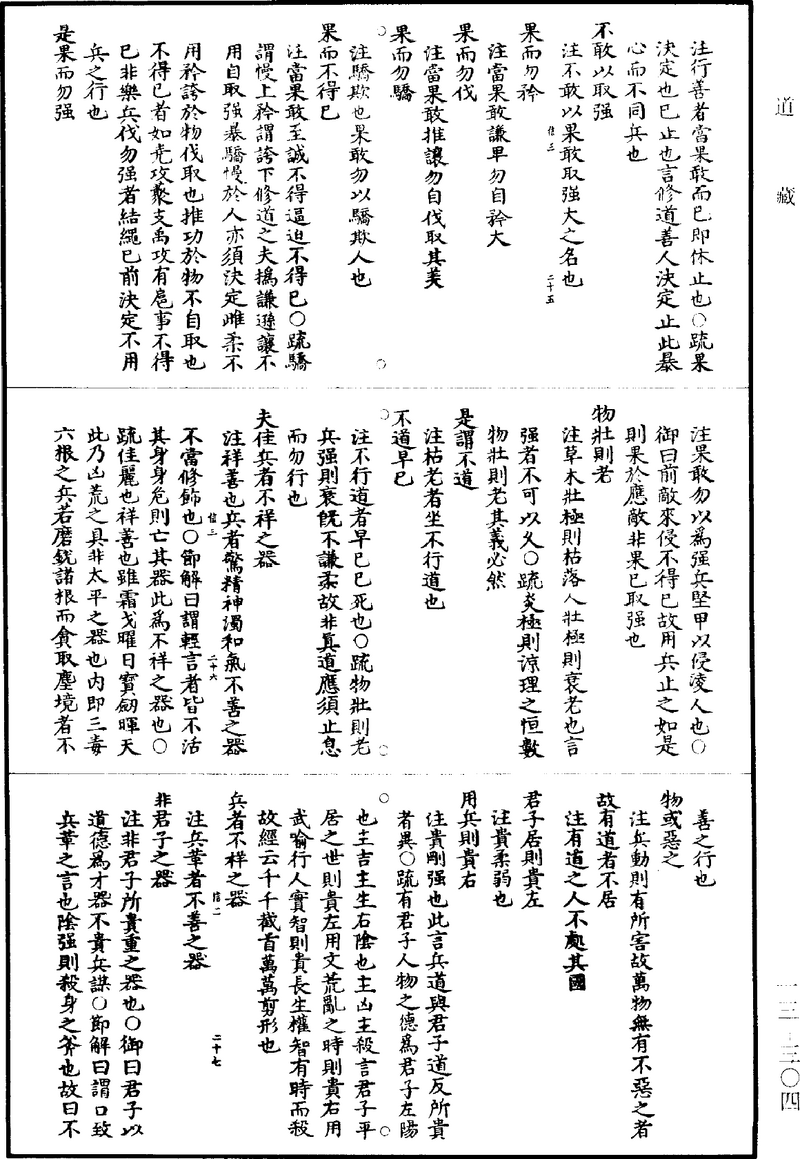 道藏
一三‧三〇四
注行善者當果敢而已即休止也○疏果
決定也已止也言修道善人決定止此暴
心而不同兵也
不敢以取强
注不敢以果敢取强大之名也
果而勿矜
信三
二十五
注當果敢謙卑勿自矜大
果而勿伐
注當果敢推讓勿自伐取其美
果而勿驕
注驕欺也果敢勿以驕欺人也
果而不得已
注當果敢至誠不得逼迫不得已○疏驕
謂慢上矜謂誇下修道之夫撝謙遜讓不
用自取强暴驕慢於人亦須決定雌柔不
用矜誇於物伐取也推功於物不自取也
不得已者如堯攻藂支禹攻有扈事不得
已非樂兵伐勿强者結繩已前決定不用
兵之行也
是果而勿强
注果敢勿以爲强兵堅甲以侵淩人也○
御曰前敵來侵不得已故用兵止之如是
則果於應敵非果已取强也
物壯則老
注草木壯極則枯落人壯極則衰老也言
强者不可以久○疏炎極則凉理之恒數
物壯則老其義必然
是謂不道
注枯老者坐不行道也
不道早已
注不行道者早已已死也○疏物壯則老
兵强則衰旣不謙柔故非真道應須止息
而勿行也
夫佳兵者不祥之器
注祥善也兵者驚精神濁和氣不善之器
信三
二十六
不當修飾也○節解曰謂輕言者皆不活
其身身危則亡其器此爲不祥之器也○
疏佳麗也祥善也雖霜戈曜日寶劒暉天
此乃凶荒之具非太平之器也内即三毒
六根之兵若磨銳諸根而貪取塵境者不
善之行也
物或惡之
注兵動則有所害故萬物無有不惡之者
故有道者不居
注有道之人不處其國
君子居則貴左
注貴柔弱也
用兵則貴右
注貴剛强也此言兵道與君子道反所貴
者異○疏有君子人物之德爲君子左陽
也主吉主生右陰也主凶主殺言君子平
居之世則貴左用文荒亂之時則貴右用
武喻行人實智則貴長生權智有時而殺
故經云千千截首萬萬剪形也
兵者不祥之器
信二
二十七
注兵革者不善之器
非君子之器
注非君子所貴重之器也○御曰君子以
道德爲才器不貴兵謀○節解曰謂口致
兵革之言也陰强則殺身之斧也故曰不